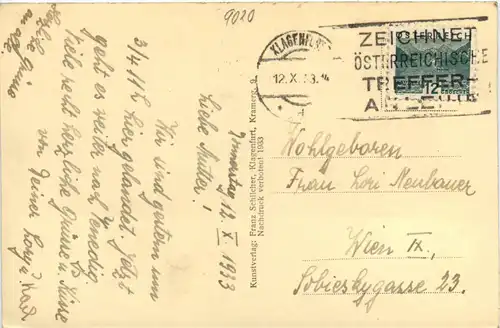 9020
KLAGENFURT
12.X.33.14
ZEICHNET
ÖSTERREICHISCHE
TREFFER-
ÖSTERREICH
12
Donnerstag 12. X. 1933
Liebe Mutter!
Wir sind gestern um
3/4 11 h hier gelandet. Jetzt
geht es weiter nach Venedig.
Viele recht herzliche Grüsse u. Küsse
von Deiner
an
Kunstverlag: Franz Schilcher, Klagenfurt, Kramerg. 9.
Nachdruck verboten! 1933
Wohlgeboren
Frau Lori Neubauer
Wien IX.,
Sobieskygasse 23.